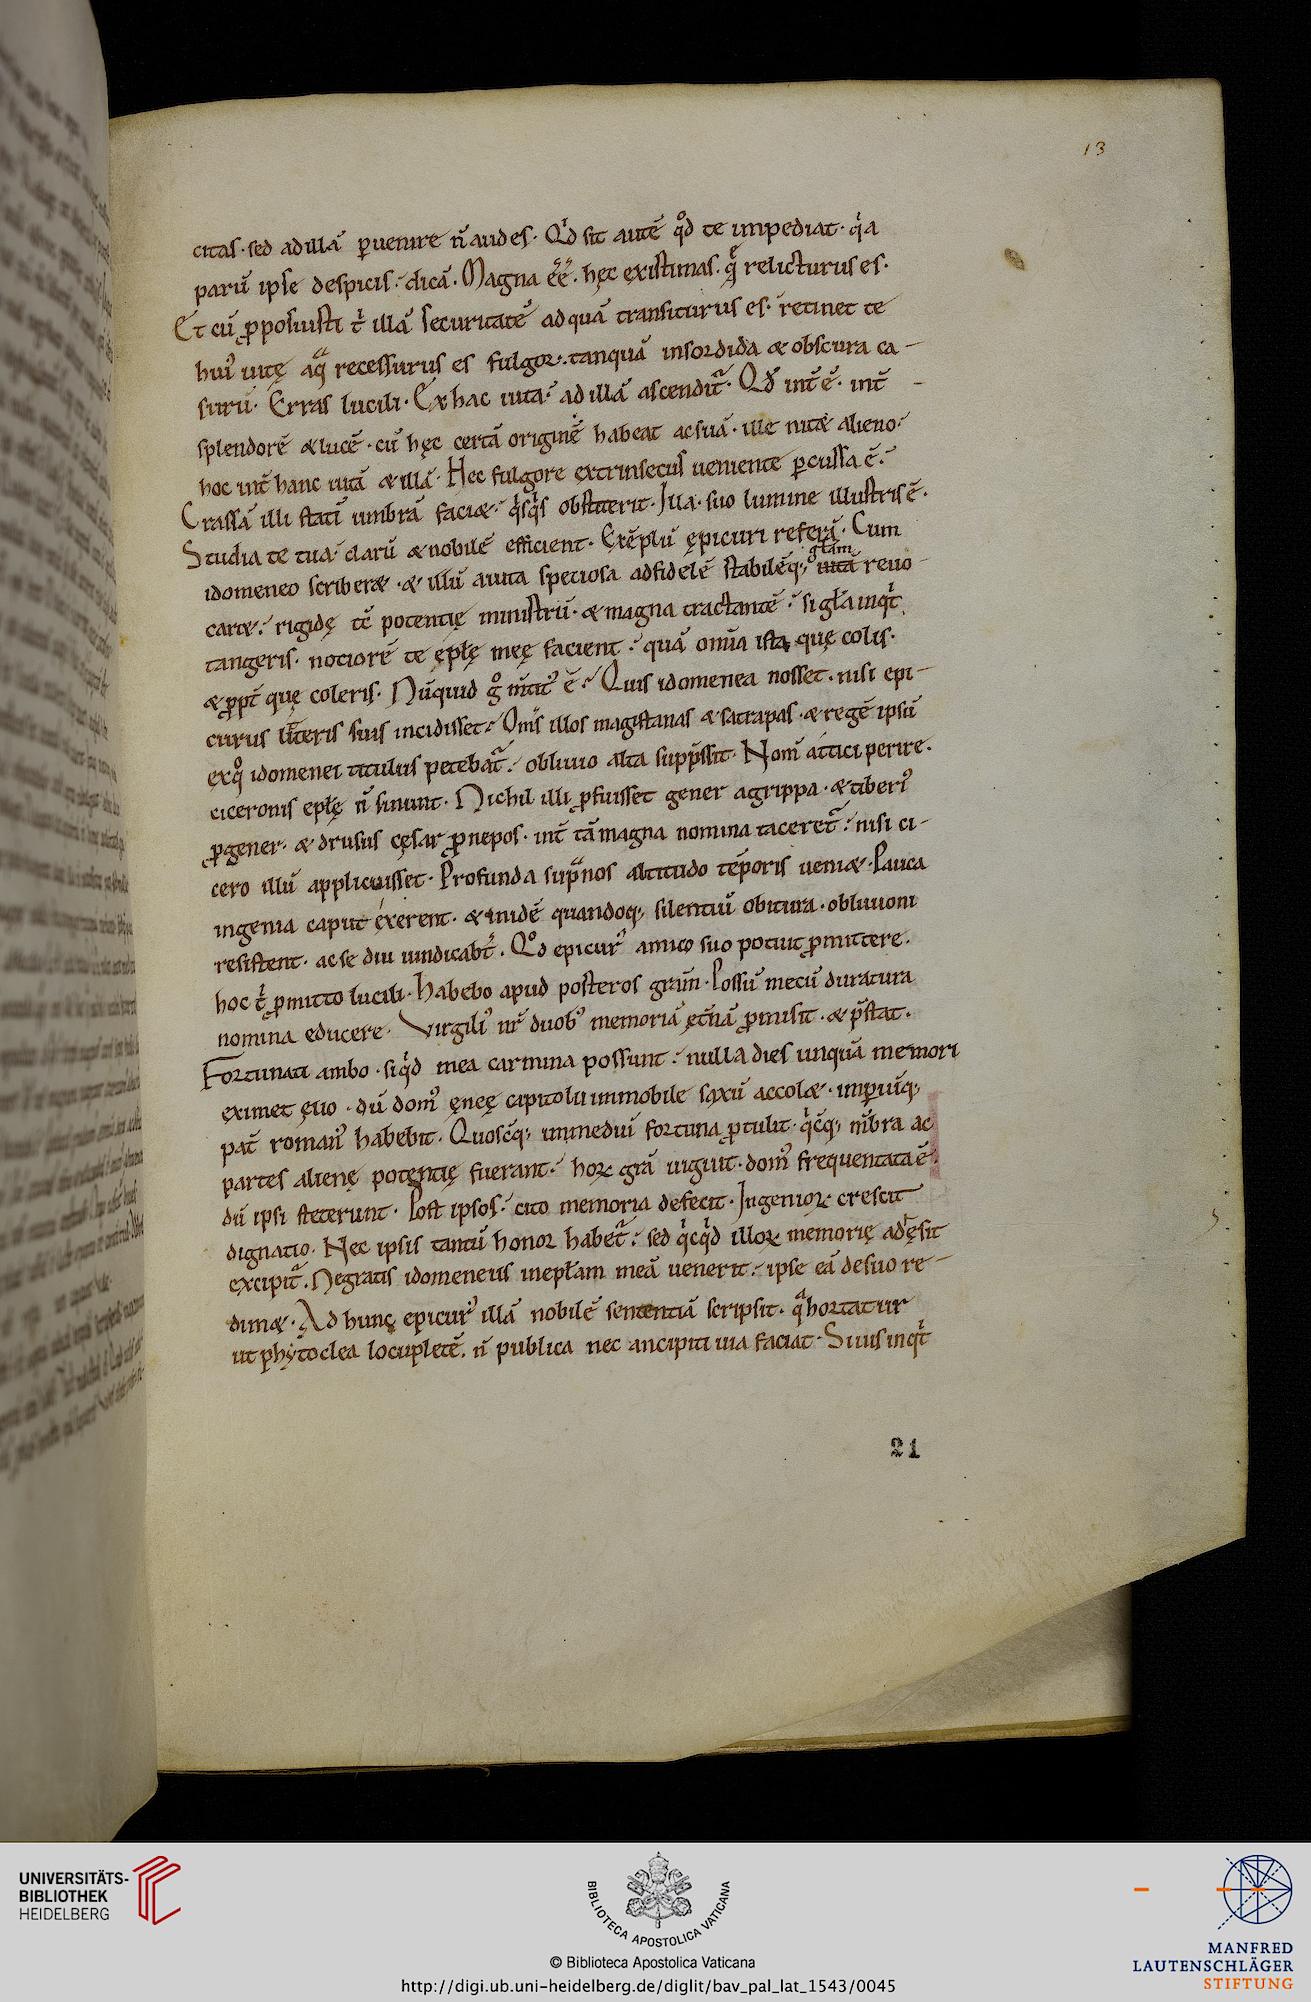 13
citas · sed ad illā ꝑuenire n̄ audes · Qͥd sit autē qͦd te impediat · qͥa
parū ipse despicis · dicā · Magna ēē · hęc existimas · q̄ relicturus es ·
Et cū ꝓposuisti tͥ illā securitatē ad quā transiturus es · retinet te
huiꝰ uitę aq̄ recessurus es fulgor · tanquā in sordida & obscura ca-
surū · Erras lucili · Ex hac uita ad illā ascenditᷣ · Qd̄ int̄ ē · int̄
splendorē & lucē · cū hęc certā originē habeat ac suā · ille nitæ alieno
hoc int̄ hanc uitā & illā · Hec fulgore extrinsecus ueniente ꝑcussa ē ·
Crassā illi statī umbrā faciæ · qͥsqͥs obstiterit · Illa · suo lumine illustris ē ·
Studia te tua · clarū & nobilē efficient · Exēplū ępicuri referā · Cum
idomeneo scriberæ · & illū a uita speciosa ad fidelē stabilēq; uitā głam reuo-
caræ · rigidę tc̄ potentię ministrū · & magna tractantē · si gła inqͥt
tangeris · notiorē te ępłę meę facient · quā om̄ia ista quę colis ·
& ꝓpt̄ quę coleris · Nūquid gͦ m̄titꝰ ē · Quis idomenea nosset · nisi epi-
curus litteris suis incidisset · Om̄s illos magistanas & satrapas · & regē ipsū
ex qͦ idomenei titulus petebatᷣ · obliuio alta supp̄ssit · Nom̄ attici perire ·
ciceronis epłę n̄ sinunt · Nichil illi ꝓfuisset gener agrippa · & tiberiꝰ
ꝓgener · & drusus cęsar ꝓnepos · int̄ tā magna nomina taceretᷣ · nisi ci-
cero illū applicuisset · Profunda sup̄ nos altitudo tēporis ueniæ · Pauca
ingenia caput exerent · & in idē quandoq; silentiū obitura · obliuioni
resistent · ac se diu uindicabt̄ · Qͦd epicurꝰ amico suo potuit ꝓmittere ·
hoc tͥ ꝓmitto lucili · Habebo apud posteros gram̄ · Possū mecū duratura
nomina educere · Virgiliꝰ nr̄ duobꝰ memoriā ęt̄nā ꝓmisit · & p̄stat ·
Fortunati ambo · si qͥd mea carmina possunt · nulla dies unquā memori
eximet ęuo · dū domꝰ ęneę capitolii immobile saxū accolæ · imꝑiūq;
pat̄ romanꝰ habebit · Quoscq; in mediū fortuna ꝓtulit · qͥcq; m̄bra ac
partes alienę potentię fuerant · hoꝝ grā uiguit · domꝰ frequentata ē ·
dū ipsi steterunt · Post ipsos · cito memoria defecit · Ingenioꝝ crescit
dignatio · Nec ipsis tantū honor habetᷣ · sed qͥcqͥd illoꝝ memorię adęsit
excipitᷣ · Ne gratis idomeneus in epłam meā uenerit · ipse eā de suo re-
dimæ · Ad hunc epicurꝰ illā nobilē sententiā scripsit · qͣ hortatur
ut phytoclea locupletē · n̄ publica nec ancipiti uia faciat · Si uis inqͥt
21
UNIVERSITÄTS-
BIBLIOTHEK
HEIDELBERG
BIBLIOTECA APOSTOLICA VATICANA
© Biblioteca Apostolica Vaticana
http://digi.ub.uni-heidelberg.de/diglit/bav_pal_lat_1543/0045
MANFRED
LAUTENSCHLÄGER
STIFTUNG